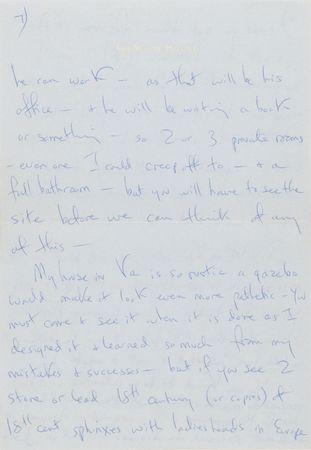 7)
he can work — as that will be his
office — & he will be writing a book
or something — so 2 or 3 private rooms
- even one I could creep off to — & a
full bathroom — but you will have to see the
site before we can think of any
of this —
My house in Va is so rustic a gazebo
would make it look even more pathetic - You
must come & see it when it is done as I
designed it & learned so much from my
mistakes & successes — but if you see 2
stone or lead 18th century (or copies) of
18th cent sphinxes with ladies heads in Europe